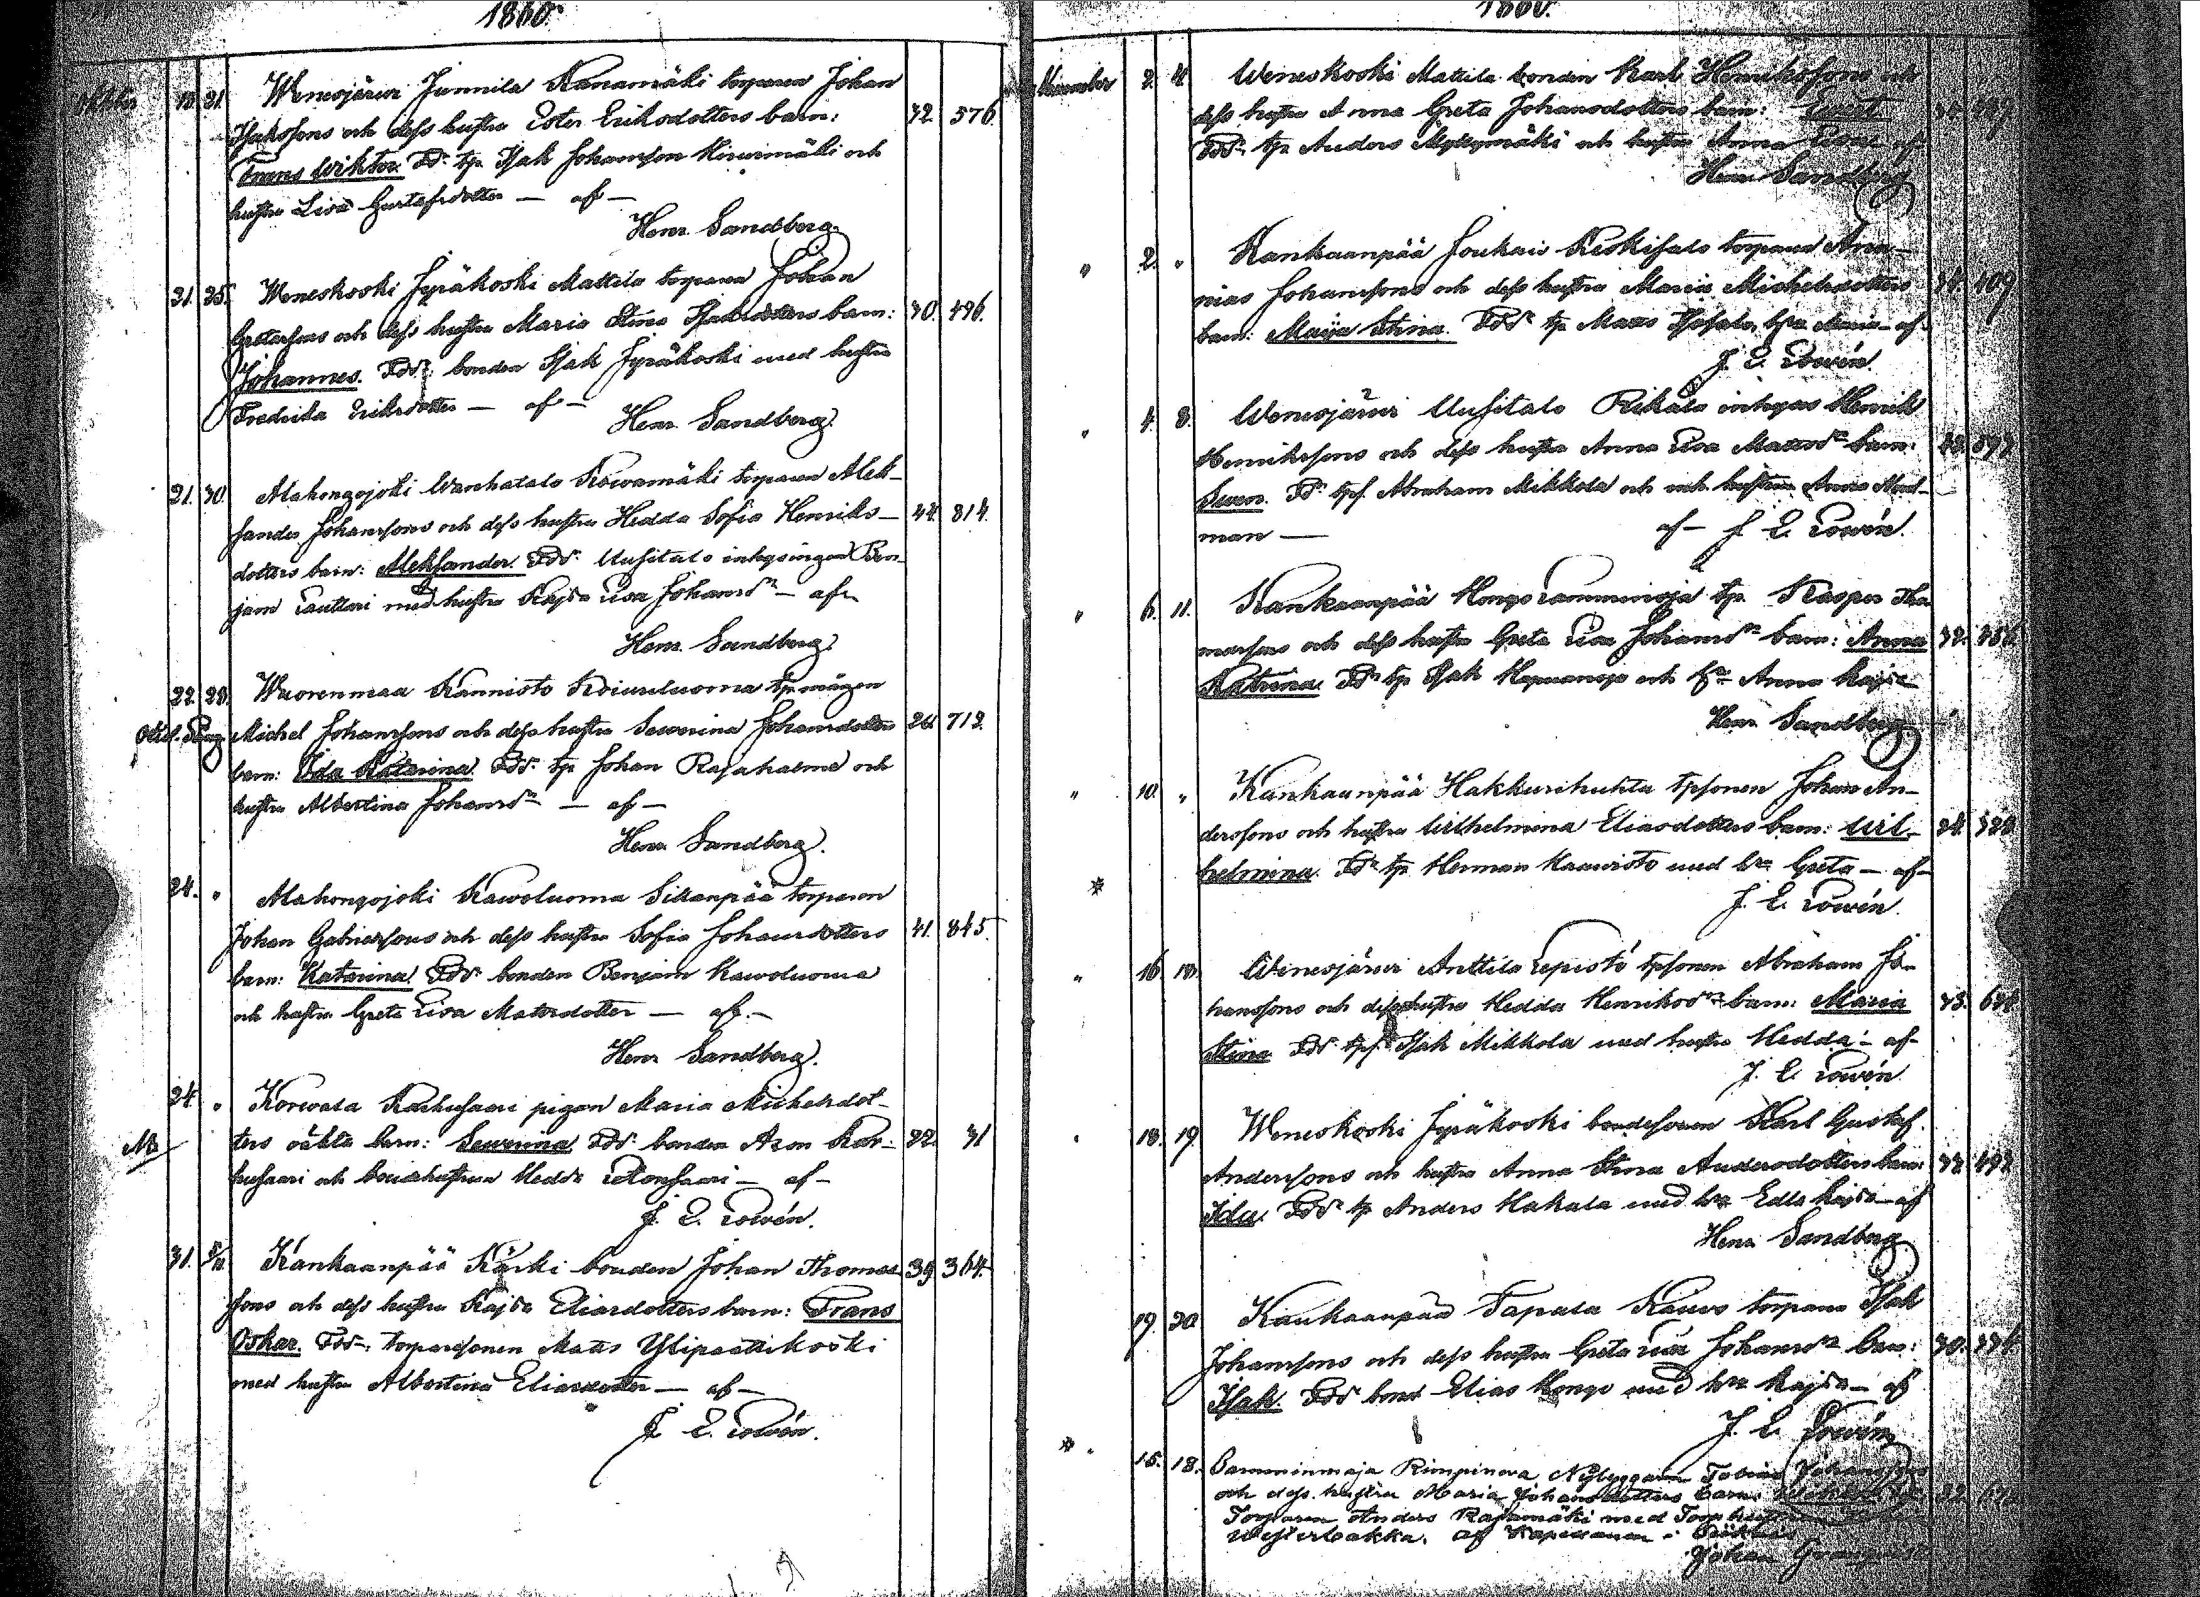 1860.
Oktober 18. 21. Wenesjärvi Junnila Kanamäki torparen Johan
Isaksons och dess hustru Ester Eriksdotters barn: 32 576.
Frans Wiktor. Fdr: tp. Isak Johansson Hirvimäki och
hustru Lisa Gustafsdotter — af —
Henr. Sandberg.
21. 25. Weneskoski Jyräkoski Mattila torparen Johan
Gretarsons och dess hustru Maria Stina Isaksdotters barn: 30. 496.
Johannes. Fdr: bonden Isak Jyräkoski med hustru
Fredrika Eriksdotter — af —
Henr. Sandberg.
21. 30. Alahongojoki Wanhatalo Koivamäki torparen Alek-
sander Johanssons och dess hustru Hedda Sofia Henriks- 44. 814.
dotters barn: Aleksander. Fdr: Uusitalo inhysingen Ben-
jam Tauttari med hustru Kajsa Lisa Johansdr — af —
Henr. Sandberg.
22. 28. Wuorenmaa Kannisto Koivuluoma tp. mågen
Michel Johanssons och dess hustru Severina Johansdotters 26. 712.
barn: Ida Katarina. Fdr: tp Johan Rajahalme och
hustru Albertina Johansdr — af —
Henr. Sandberg.
24. " Alahongojoki Kawoluoma Sillanpää torparen
Johan Gabrielsons och dess hustru Sofia Johansdotters 41. 845.
barn: Katarina. Fdr: bonden Benjam Kawoluoma
och hustru Greta Lisa Matsdotter — af —
Henr. Sandberg.
24. " Korwala Karhusaari pigan Maria Michelsdot-
ters oäkta barn: Severina. Fdr: bonden Aron Kar- 22. 31
husaari och bondehustrun Hedda Honkasaari — af —
J. E. Lowén.
31. Kankaanpää Kärki bonden Johan Thomas- 39. 364.
sons och dess hustru Kajsa Eliasdotters barn: Frans
Oskar. Fdr: torparesonen Mats Ylipaattikoski
med hustru Albertina Eliasdotter — af —
J. E. Lowén.
1860.
November 2. 4. Weneskoski Mattila bonden Karl Henrikssons och
dess hustru Anna Greta Johansdotters barn:
Fdr: tp Anders Myllymäki och hustru Anna Lisa af
Henr. Sandberg
" 2. " Kankaanpää Joukais Keskisalo torparen Ana-
nias Johanssons och dess hustru Maria Michelsdotters 409
barn: Maija Stina. Fdr tp Mats Isosalo, hru Maria — af
J. E. Lowén.
" 4. 8. Wenesjärvi Uusitalo Rikala inhyses Henrik
Henrikssons och dess hustru Anna Lisa Matsdr barn:
Swen. Fdr tps. Abraham Mikkola och hustru Anna Nord-
man — af — J. E. Lowén.
" 6. 11. Kankaanpää Hongo Lamminoja tp. Kasper Tho-
massons och dess hustru Greta Lisa Johansdr barn: Anna 32.
Katrina. Fdr tp Isak Hapuanoja och hru Anna Kajsa
Henr. Sandberg
" 10. " Kankaanpää Hakkurihuhta tpsonen Johan An-
derssons och hustru Wilhelmina Eliasdotters barn: Wil- 24. 320.
helmina. Fdr tp Herman Haavisto med hru Greta — af
* J. E. Lowén.
" 16. 18. Wenesjärvi Anttila Lepistö tpsonen Abraham Jo-
hanssons och dess hustru Hedda Henriksdr barn: Maria 33.
Stina. Fdr tps. Isak Mikkola med hustru Hedda — af —
J. E. Lowén.
18. 19. Weneskoski Jyräkoski bondesonen Karl Gustaf
Anderssons och hustru Anna Stina Andersdotters barn
Ida. Fdr tp Anders Hakala med hru Edla Kajsa — af
Henr. Sandberg
19. 20. Kankaanpää Tapala Kauvo torparen Isak
Johanssons och dess hustru Greta Lisa Johansdr barn: 30.
Isak. Fdr bond Elias Hongo med hru Kajsa — af
J. E. Lowén
* 15. 18. Lamminmaja Rimpineva Nybyggaren Tobias Johansson
och dess hustru Maria Johansdotters barn
Torparen Anders Rajamäki med Torp
Westerbakka. af Kapellanen i
Johan